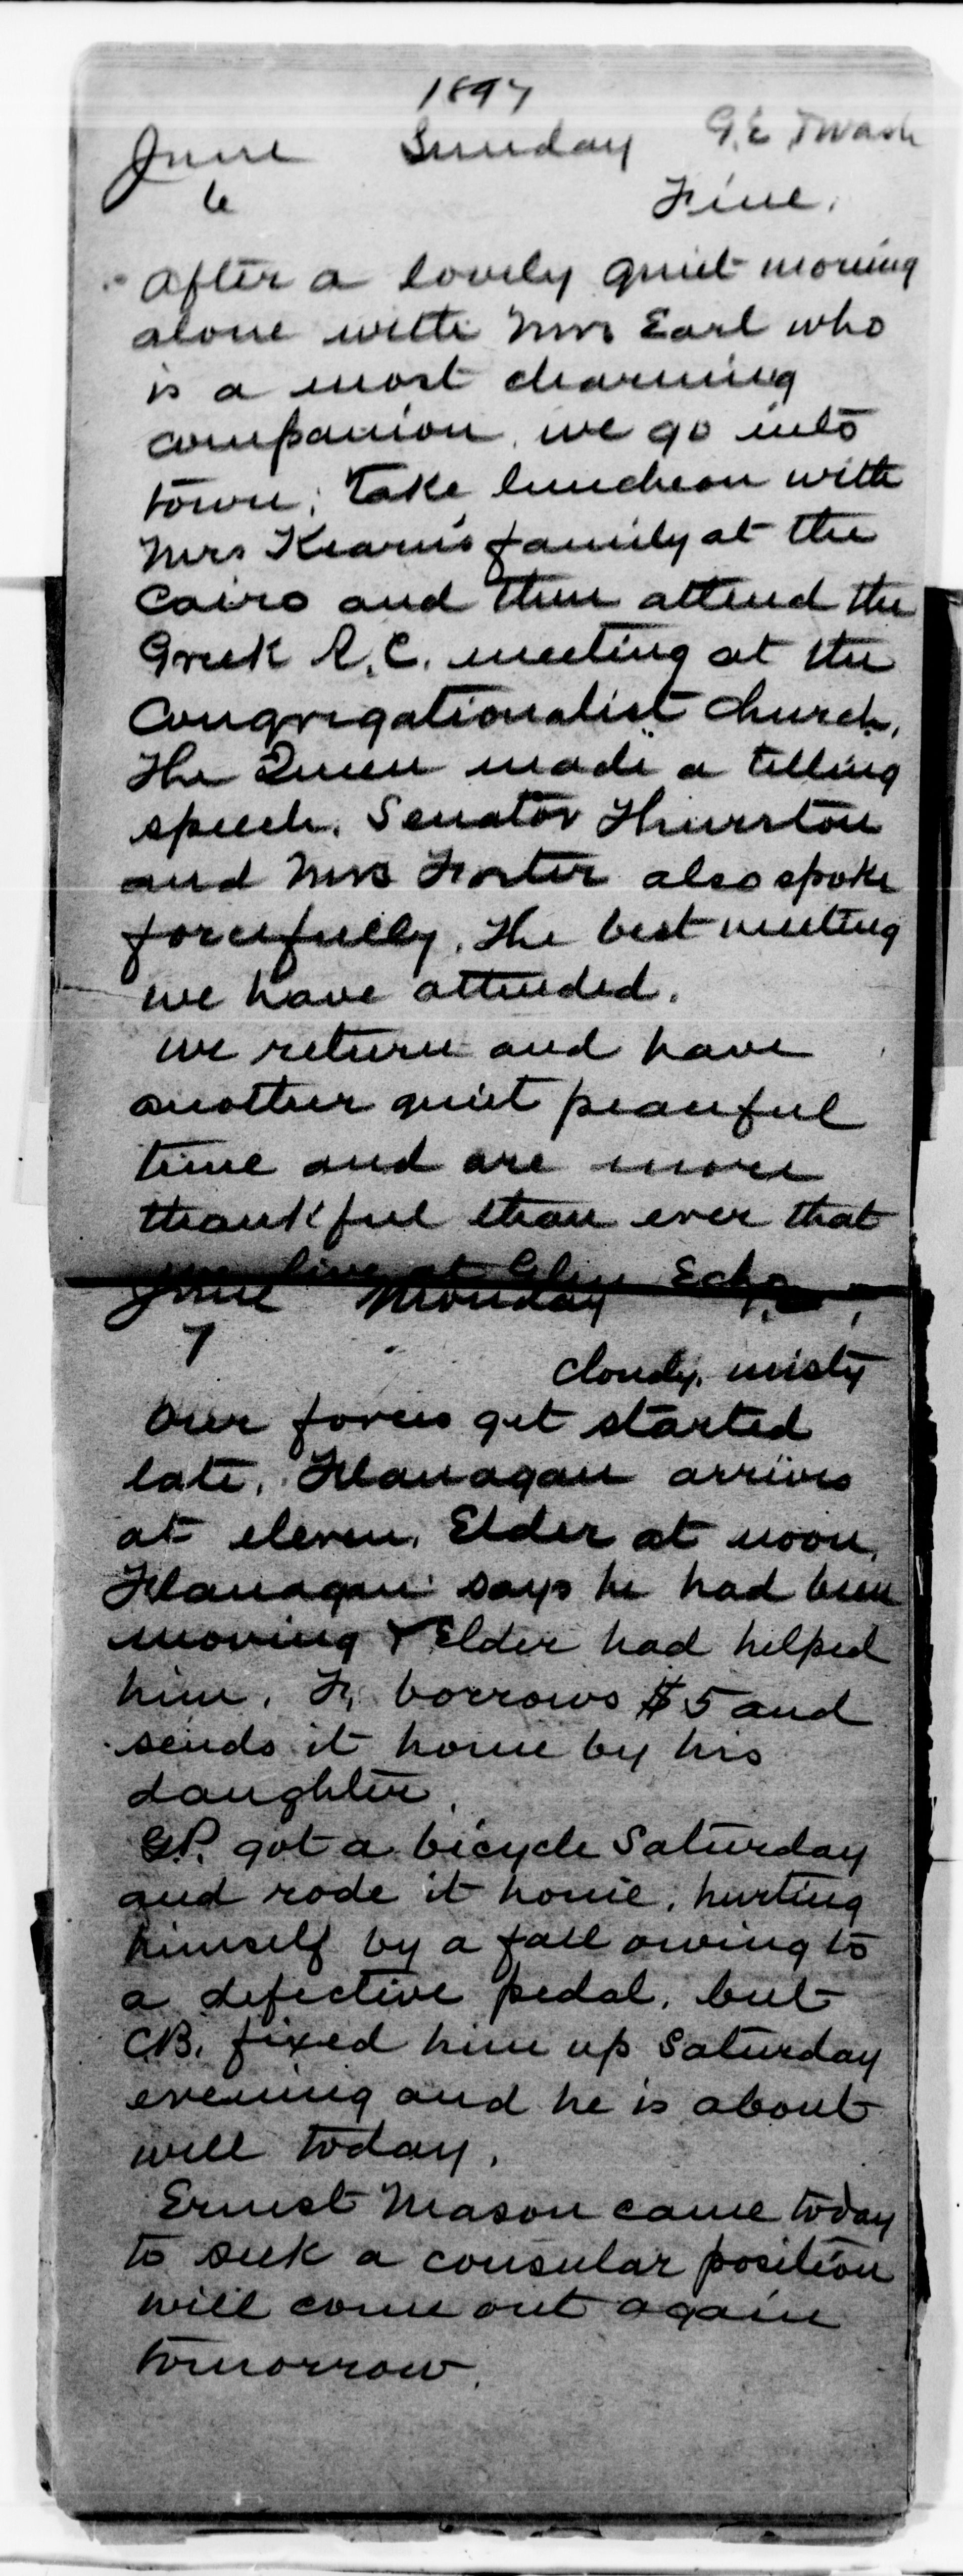 1897
June Sunday G.E & Wash
6 Fine.
After a lovely quiet morning
alone with Mrs Earl who
is a most charming
companion, we go into
town; Take luncheon with
Mrs Kearns family at the
Cairo and then attend the
Greek R. C. meeting at the
Congregationalist church.
The Queen made a telling
speech. Senator Thurston
and Mrs Foster also spoke
forcefully. The best meeting
we have attended.
we return and have
another quiet peaceful
time and are more
thankful than ever that
we live at Glen Echo
June Monday
7
Cloudy, misty
Our forces get started
late. Flanagan arrives
at eleven, Elder at noon.
Flanagan says he had been
moving & Elder had helped
him. F. borrows $5 and
sends it home by his
daughter.
G.P. got a bicycle Saturday
and rode it home, hurting
himself by a fall owing to
a defective pedal, but
C.B. fixed him up Saturday
evening and he is about
well today.
Ernest Mason came today
to seek a consular position
will come out again
tomorrow.